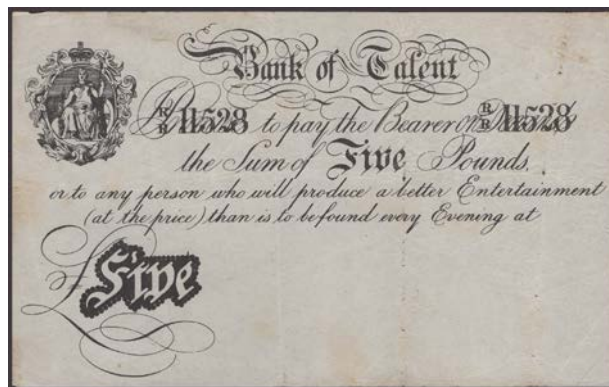 Bank of Talent
R/R 11528 to pay the Bearer on R/R 11528
the Sum of Five Pounds.
or to any person who will produce a better Entertainment
(at the price) than is to be found every Evening at
£ Five